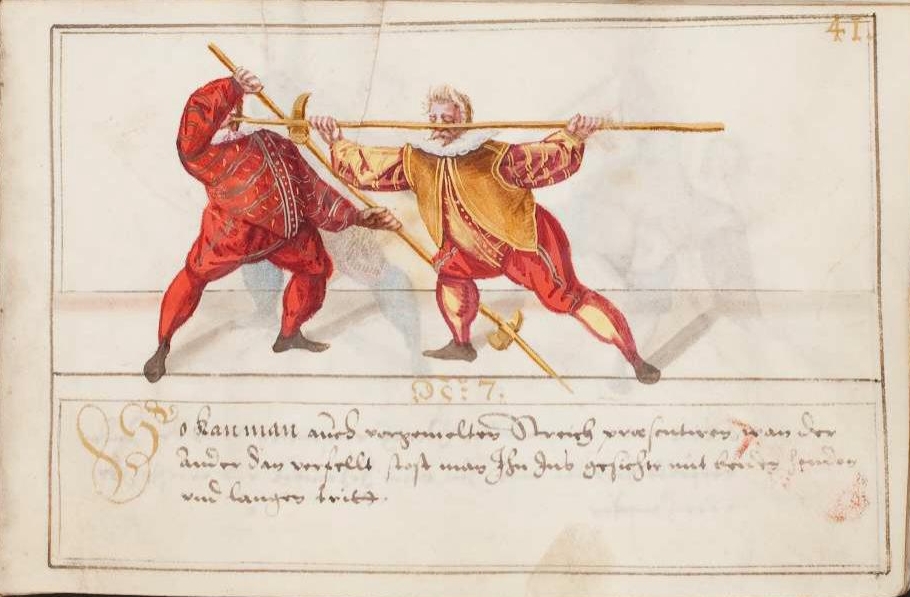 41.
Dc: 7.
So kan man auch vorgemelten Streich præsentiren, wan der
ander dan verfellt stost man Ihn Ins gesicht mit beiden henden
vnd langen tritt.